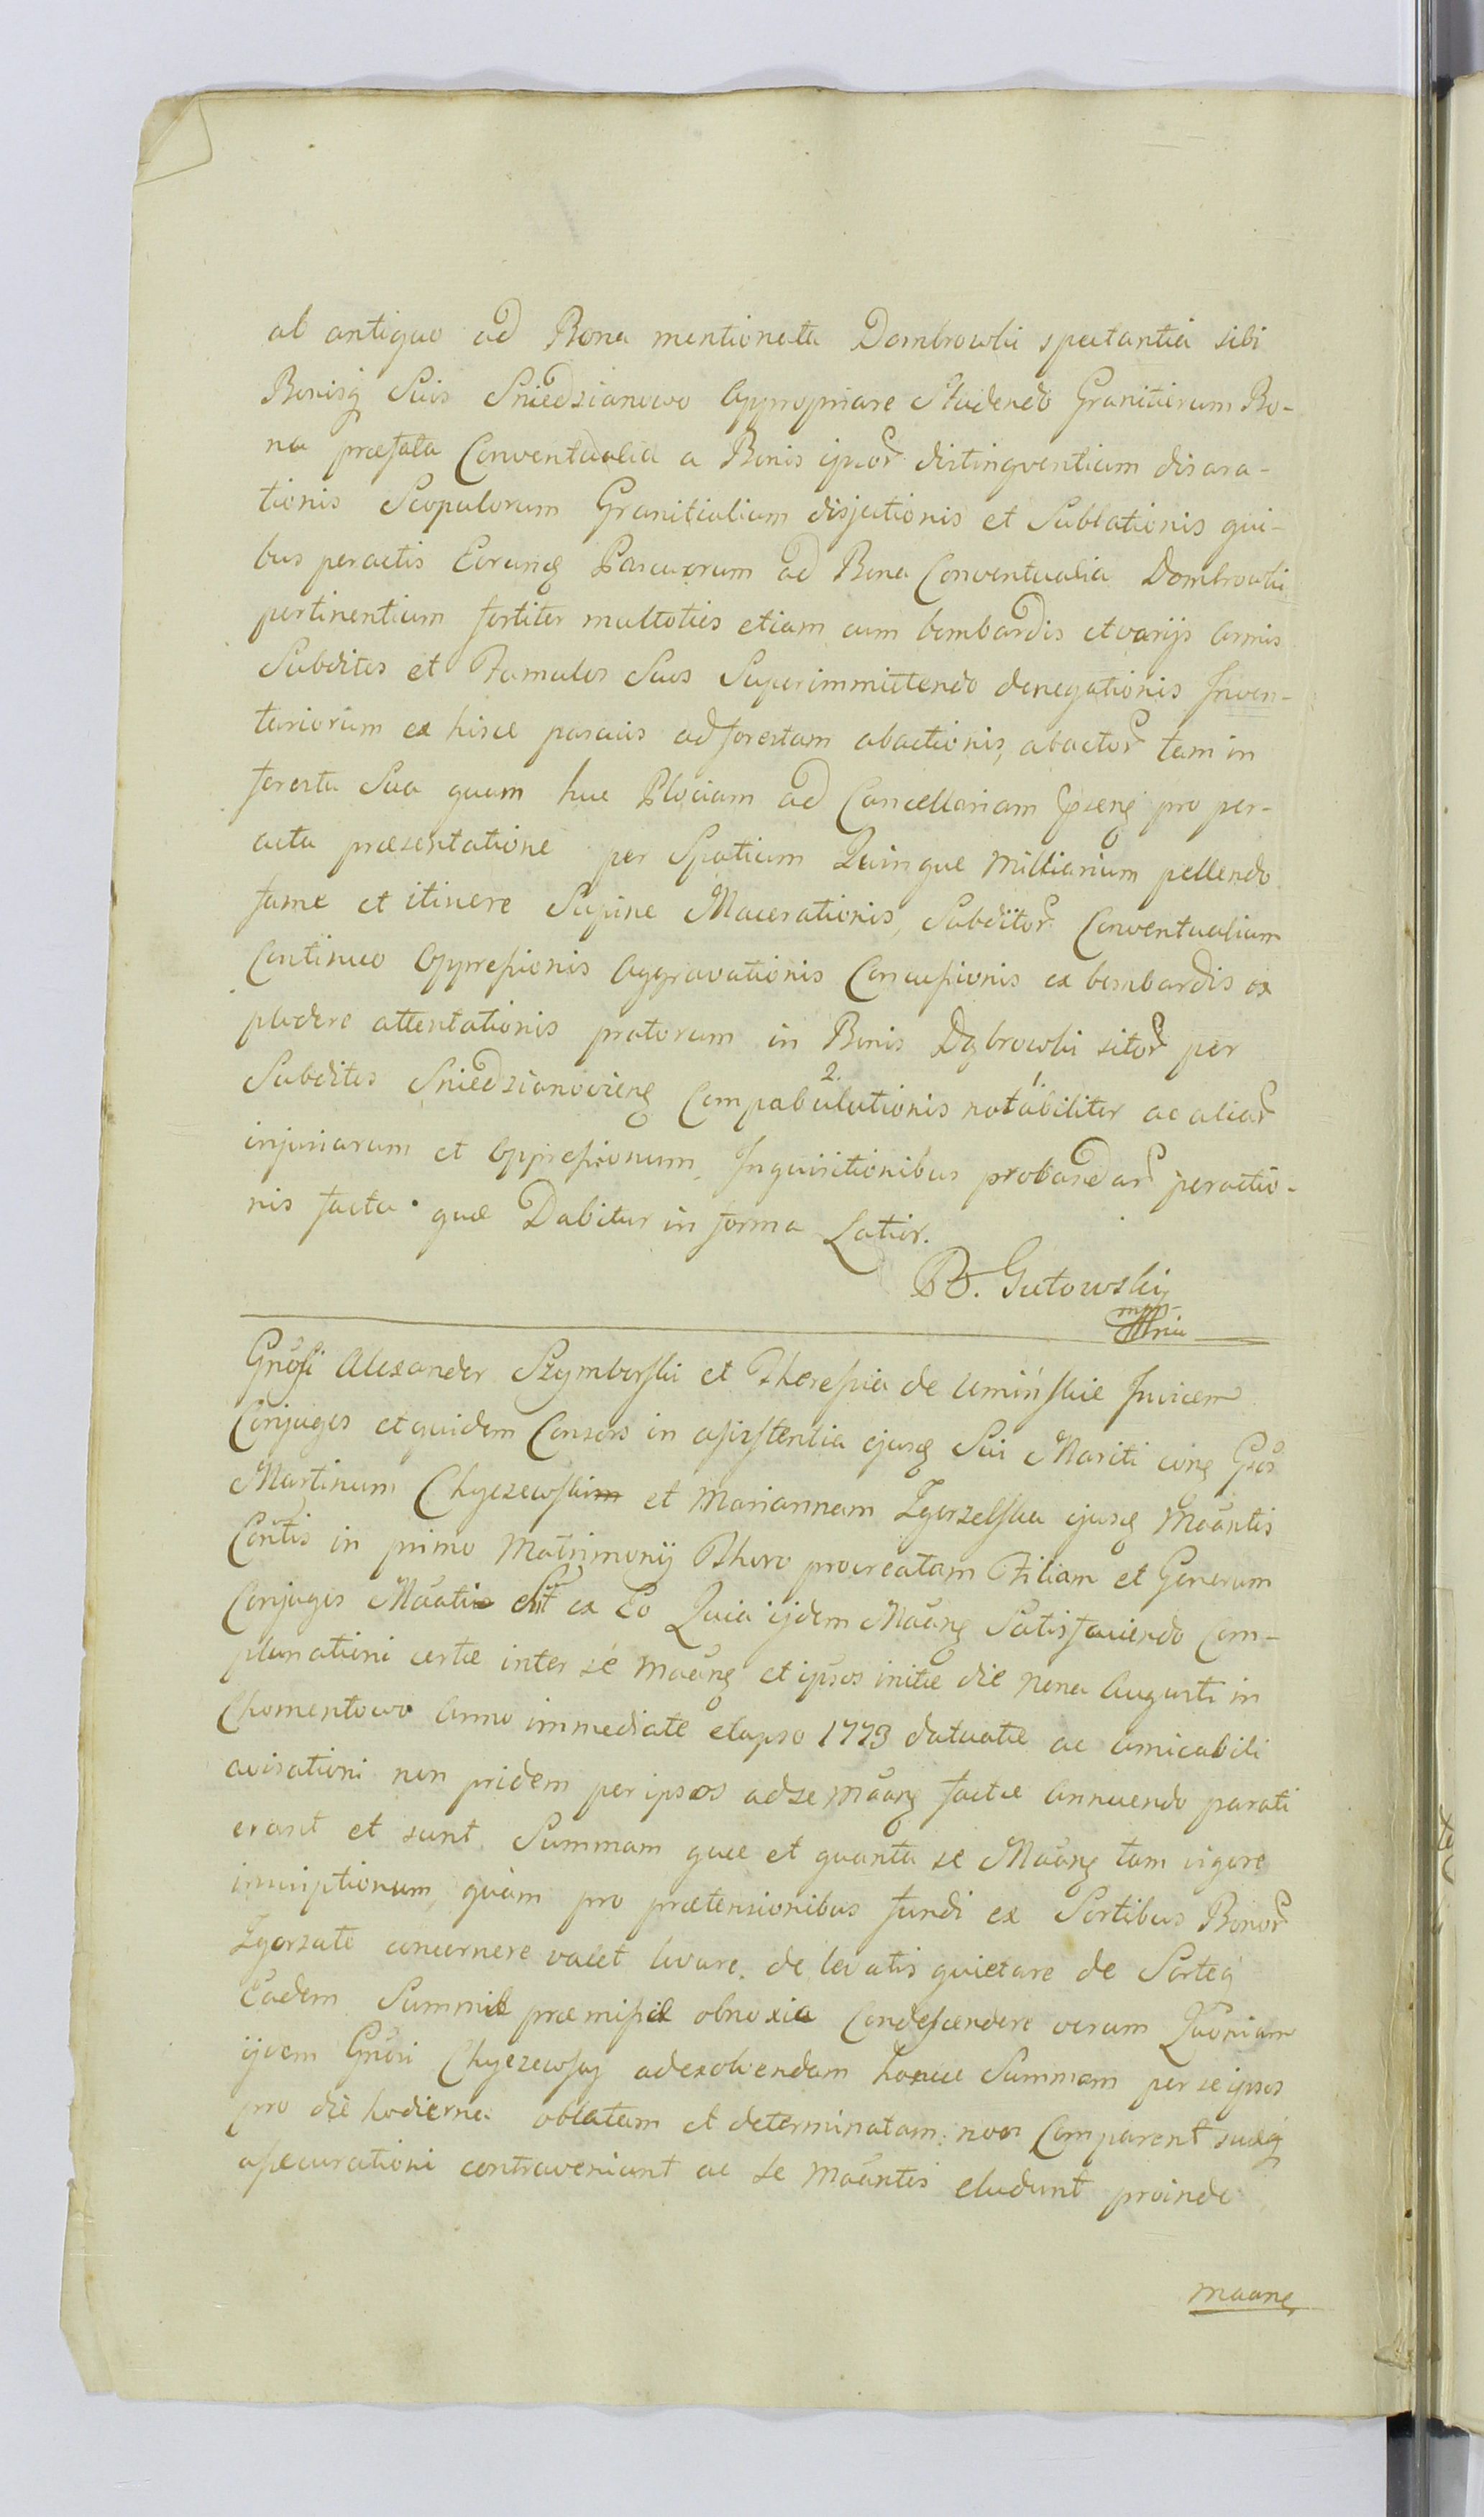 ab antiquo ad Bona mentionata Dombrowki spectantia sibi
Bonisq Suis Sniedzianowo Appropriare Studendo Granitierum Bo-
na præfata Conventualia a Bonis ipsor distinqventium disara-
tionis Scopulorum Granitialium disjectionis et Sublationis qui-
bus peractis Eorunq Pascuorum ad Bona Conventualia Dombrowki
pertinentium fortiter multoties etiam cum bombardis et varijs Armis
Subditos et Famulos Suos Superimmittendo denegationis Inven-
tariorum ex hisce pascuis ad forestam abactionis, abactor tam in
foresta Sua quam huc Plociam ad Cancellariam pro per-
acta præsentatione per Spatium Quinque Milliarium pellendo
fame et itinere Supine Macerationis, Subditor Conventualium
Continuo Oppressionis Aggravationis Concussionis ex bombardis ex
pludere attentationis pratorum in Bonis Dąbrowki sitor per
Subditos Sniedzianoviens Compabulationis 2. notabiliter 1. ac aliar
injuriarum et Oppressionum Inquisitionibus probandar peractio-
nis facta. quæ Dabitur in forma Latior.
Gutowski
mpp
Gnosi Alexander Szymborski et Theressia de Umińskie Invicem
Conjuges et quidem Consors in assistentia ejusq Sui Mariti cong Gsos
Martinum Chyczewski et Mariannam Zgorzelska ejusq Maantis
Contis in primo Matrimonij Thoro procreatam Filiam et Generum
Conjuges Maati ex Eo Quia ijdem Maang Satisfaciendo Com-
planationi certæ inter sé Maang et ipsos initæ die Nona Augusti in
Chomentowo Anno immediate elapso 1773 datuatæ ac amicabili
avisationi non pridem per ipsos ad se Maang factæ Annuendo parati
erant et sunt. Summam quæ et quanta se Maang tam vigore
inscriptionum, quam pro prætensionibus fundi ex Sortibus Bonor
Zgorzale concernere valet levare. de levatis quietare de Sorteq
Eadem Summæ præmissæ obnoxia Condescendere verum Quoniam
ijdem Gnosi Chyczewscy ad exolvendam hancce Summam per se ipsos
pro die hodierna oblatam et determinatam: non Comparent suæq
assecurationi contraveniunt ac se Maantes eludunt proinde
Maang